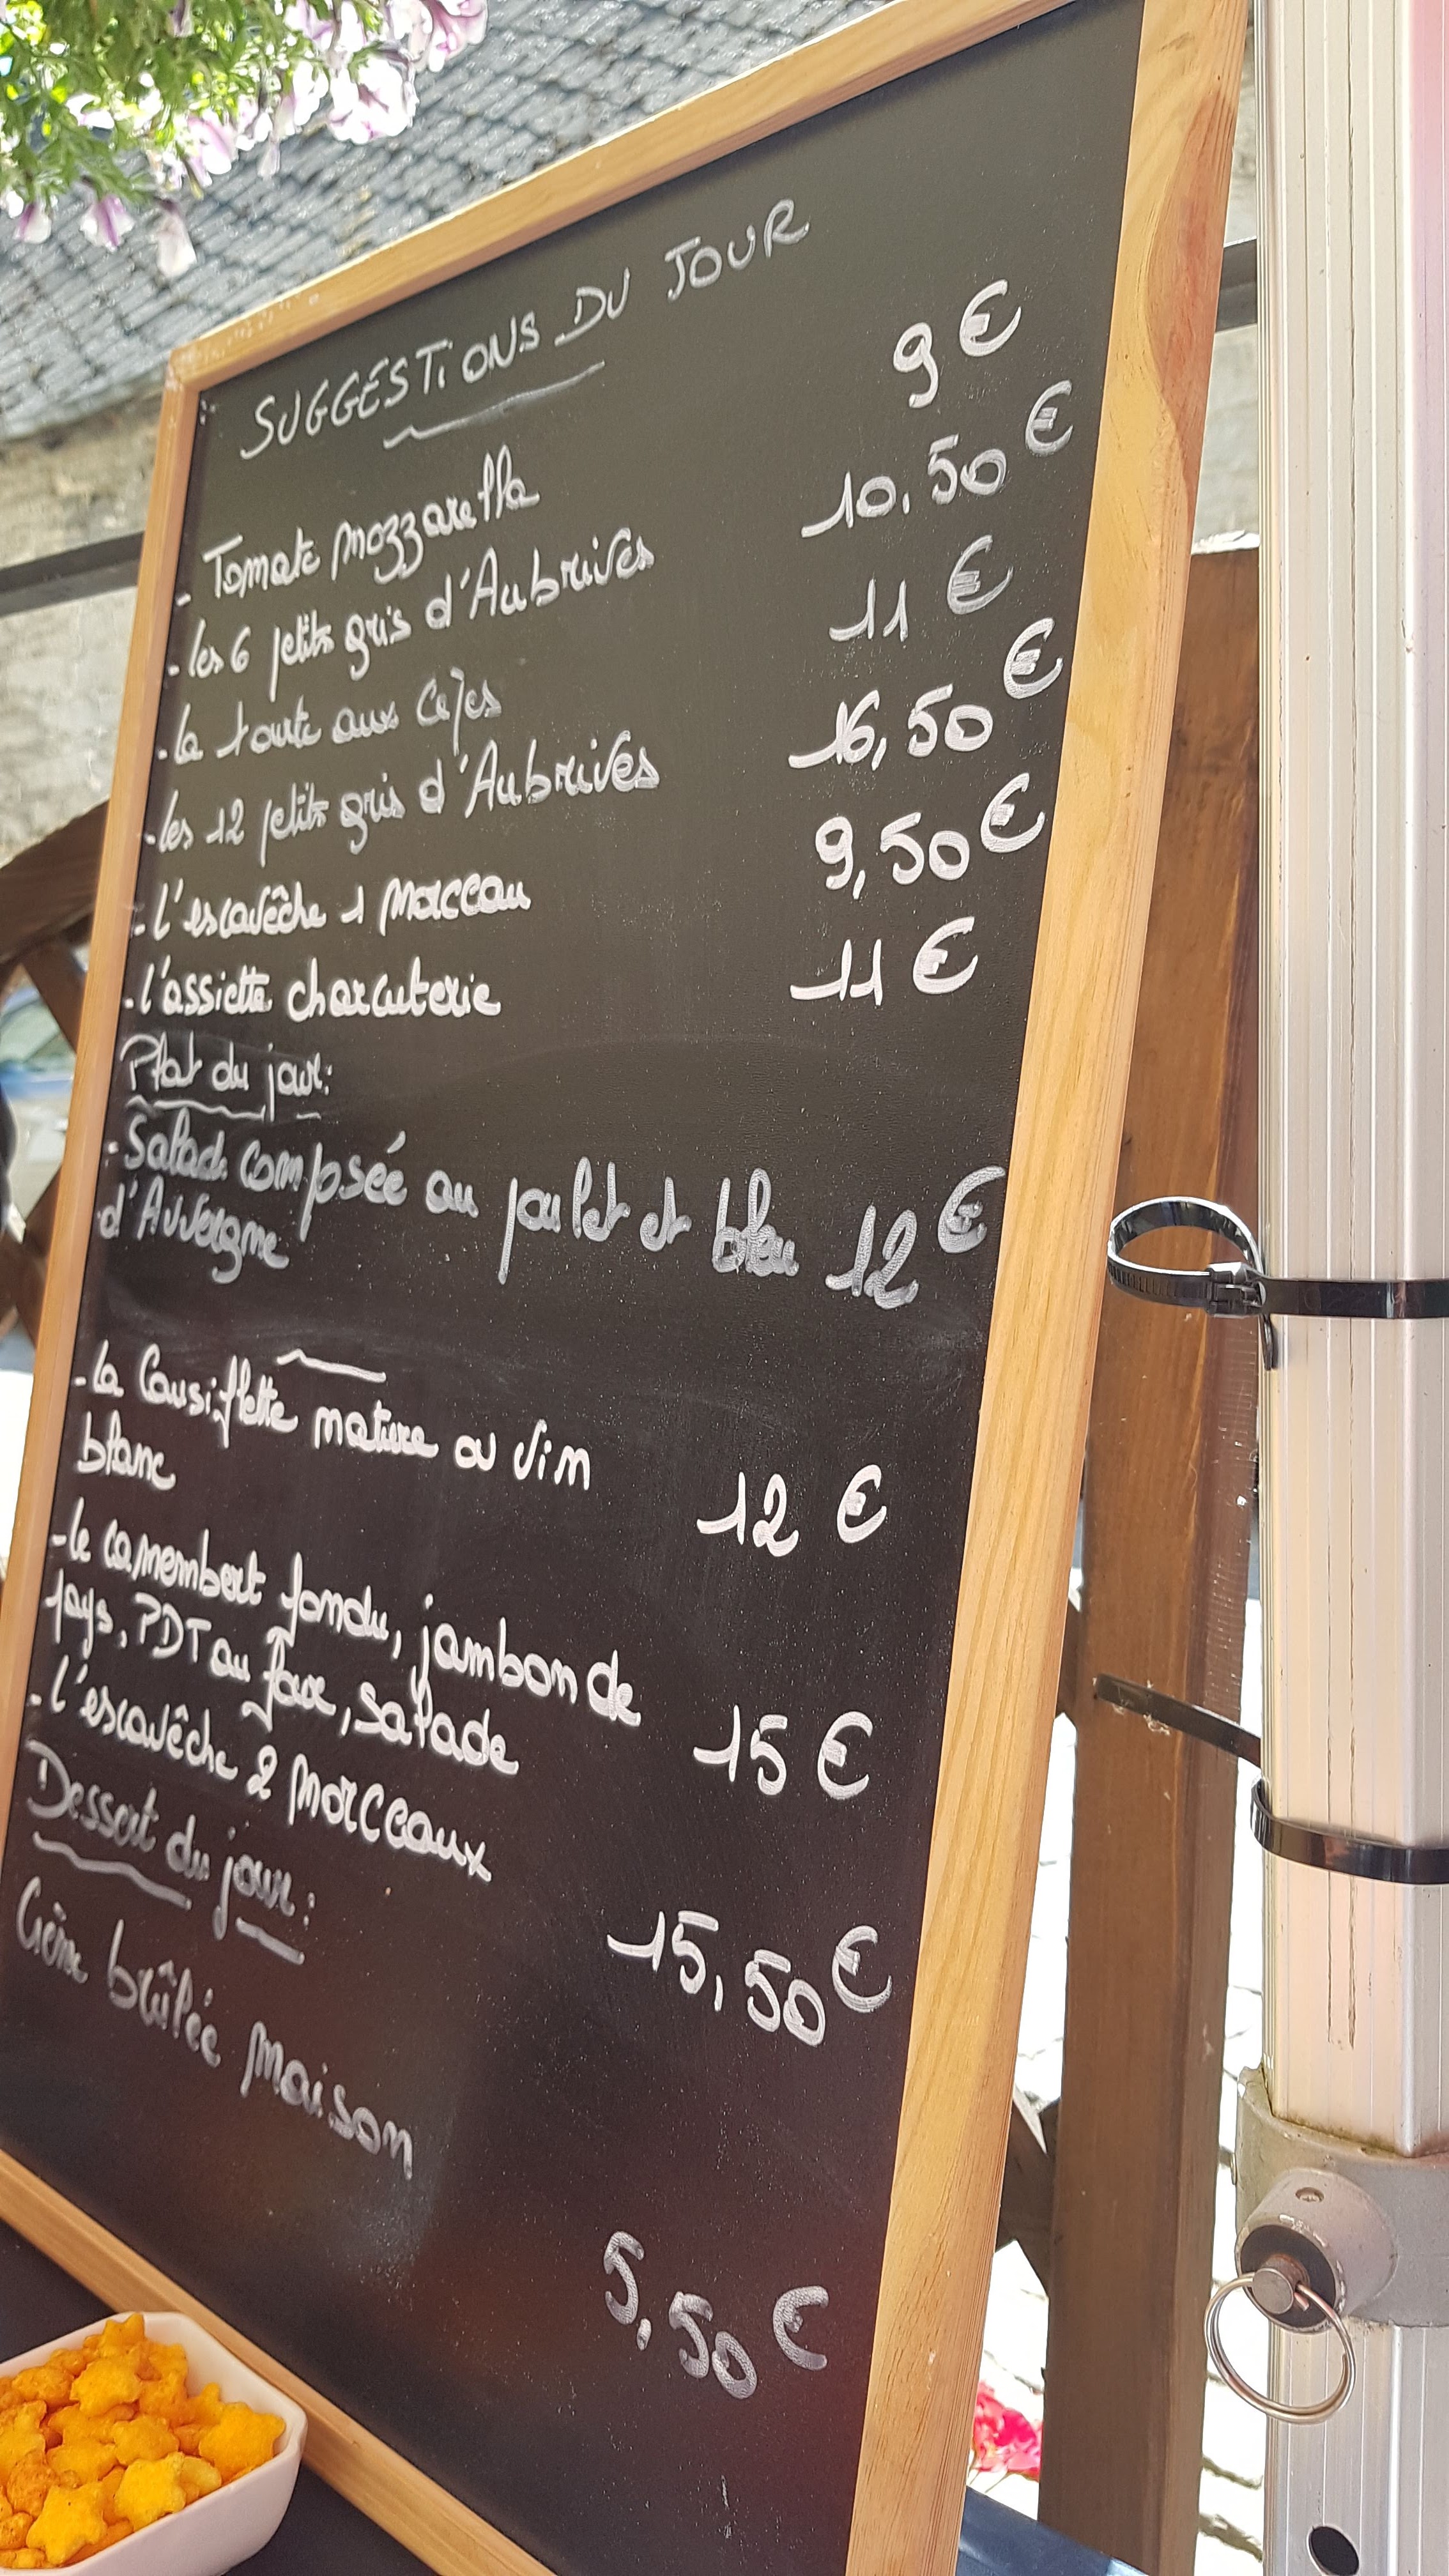 SUGGESTIONS DU JOUR
- Tomate mozzarella 9€
- les 6 petits gris d'Aubrives 10,50€
- la tourte aux cèpes 11€
- les 12 petits gris d'Aubrives 16,50€
- l'escavêche 1 morceau 9,50€
- l'assiette charcuterie 11€
Plat du jour:
- Salade composée au poulet et bleu 12€
d'Auvergne
- la Causiflette nature ou vin
blanc 12€
- le camembert fondu, jambon de
pays, PDT au four, salade 15€
- l'escavêche 2 morceaux 15,50€
Dessert du jour:
Crème brûlée maison 5,50€